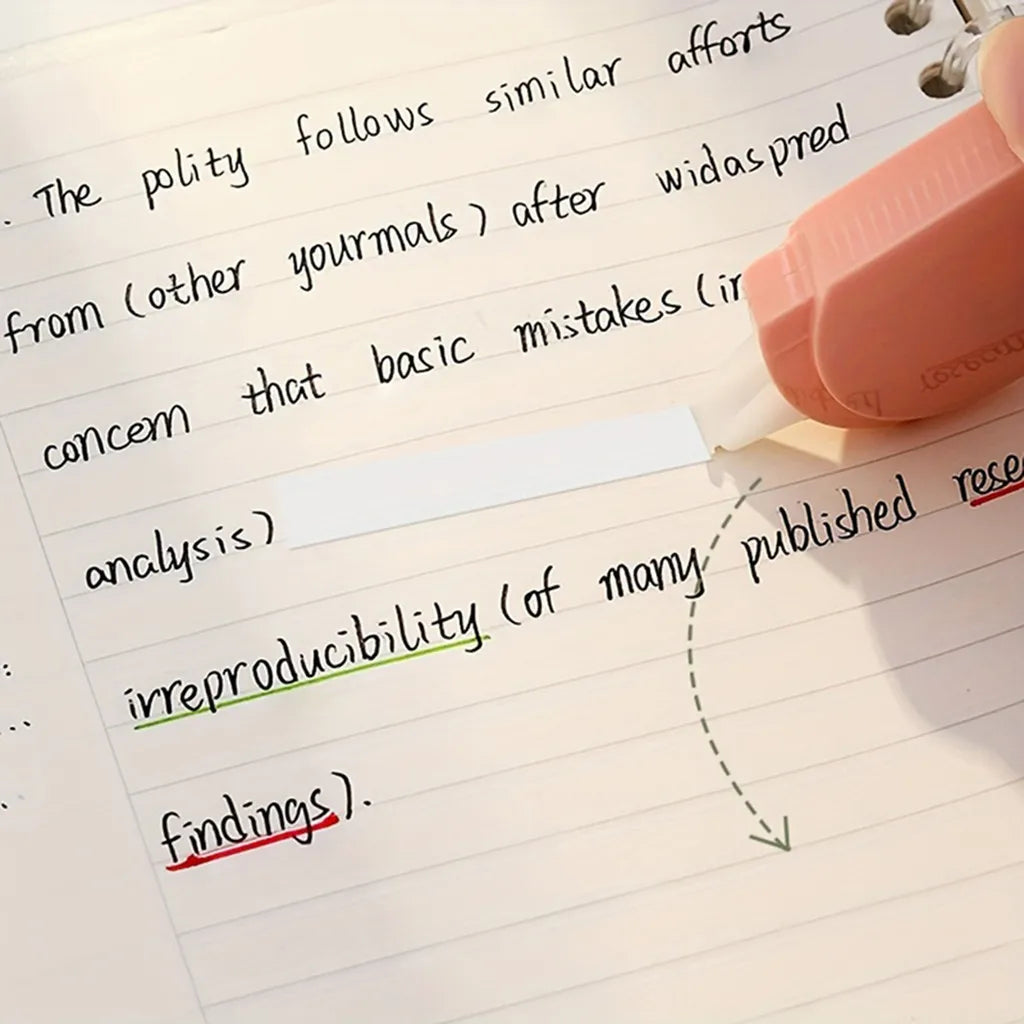 . The polity follows similar afforts
from (other yourmals) after widaspred
concern that basic mistakes (in
analysis)
irreproducibility (of many published rese
findings).